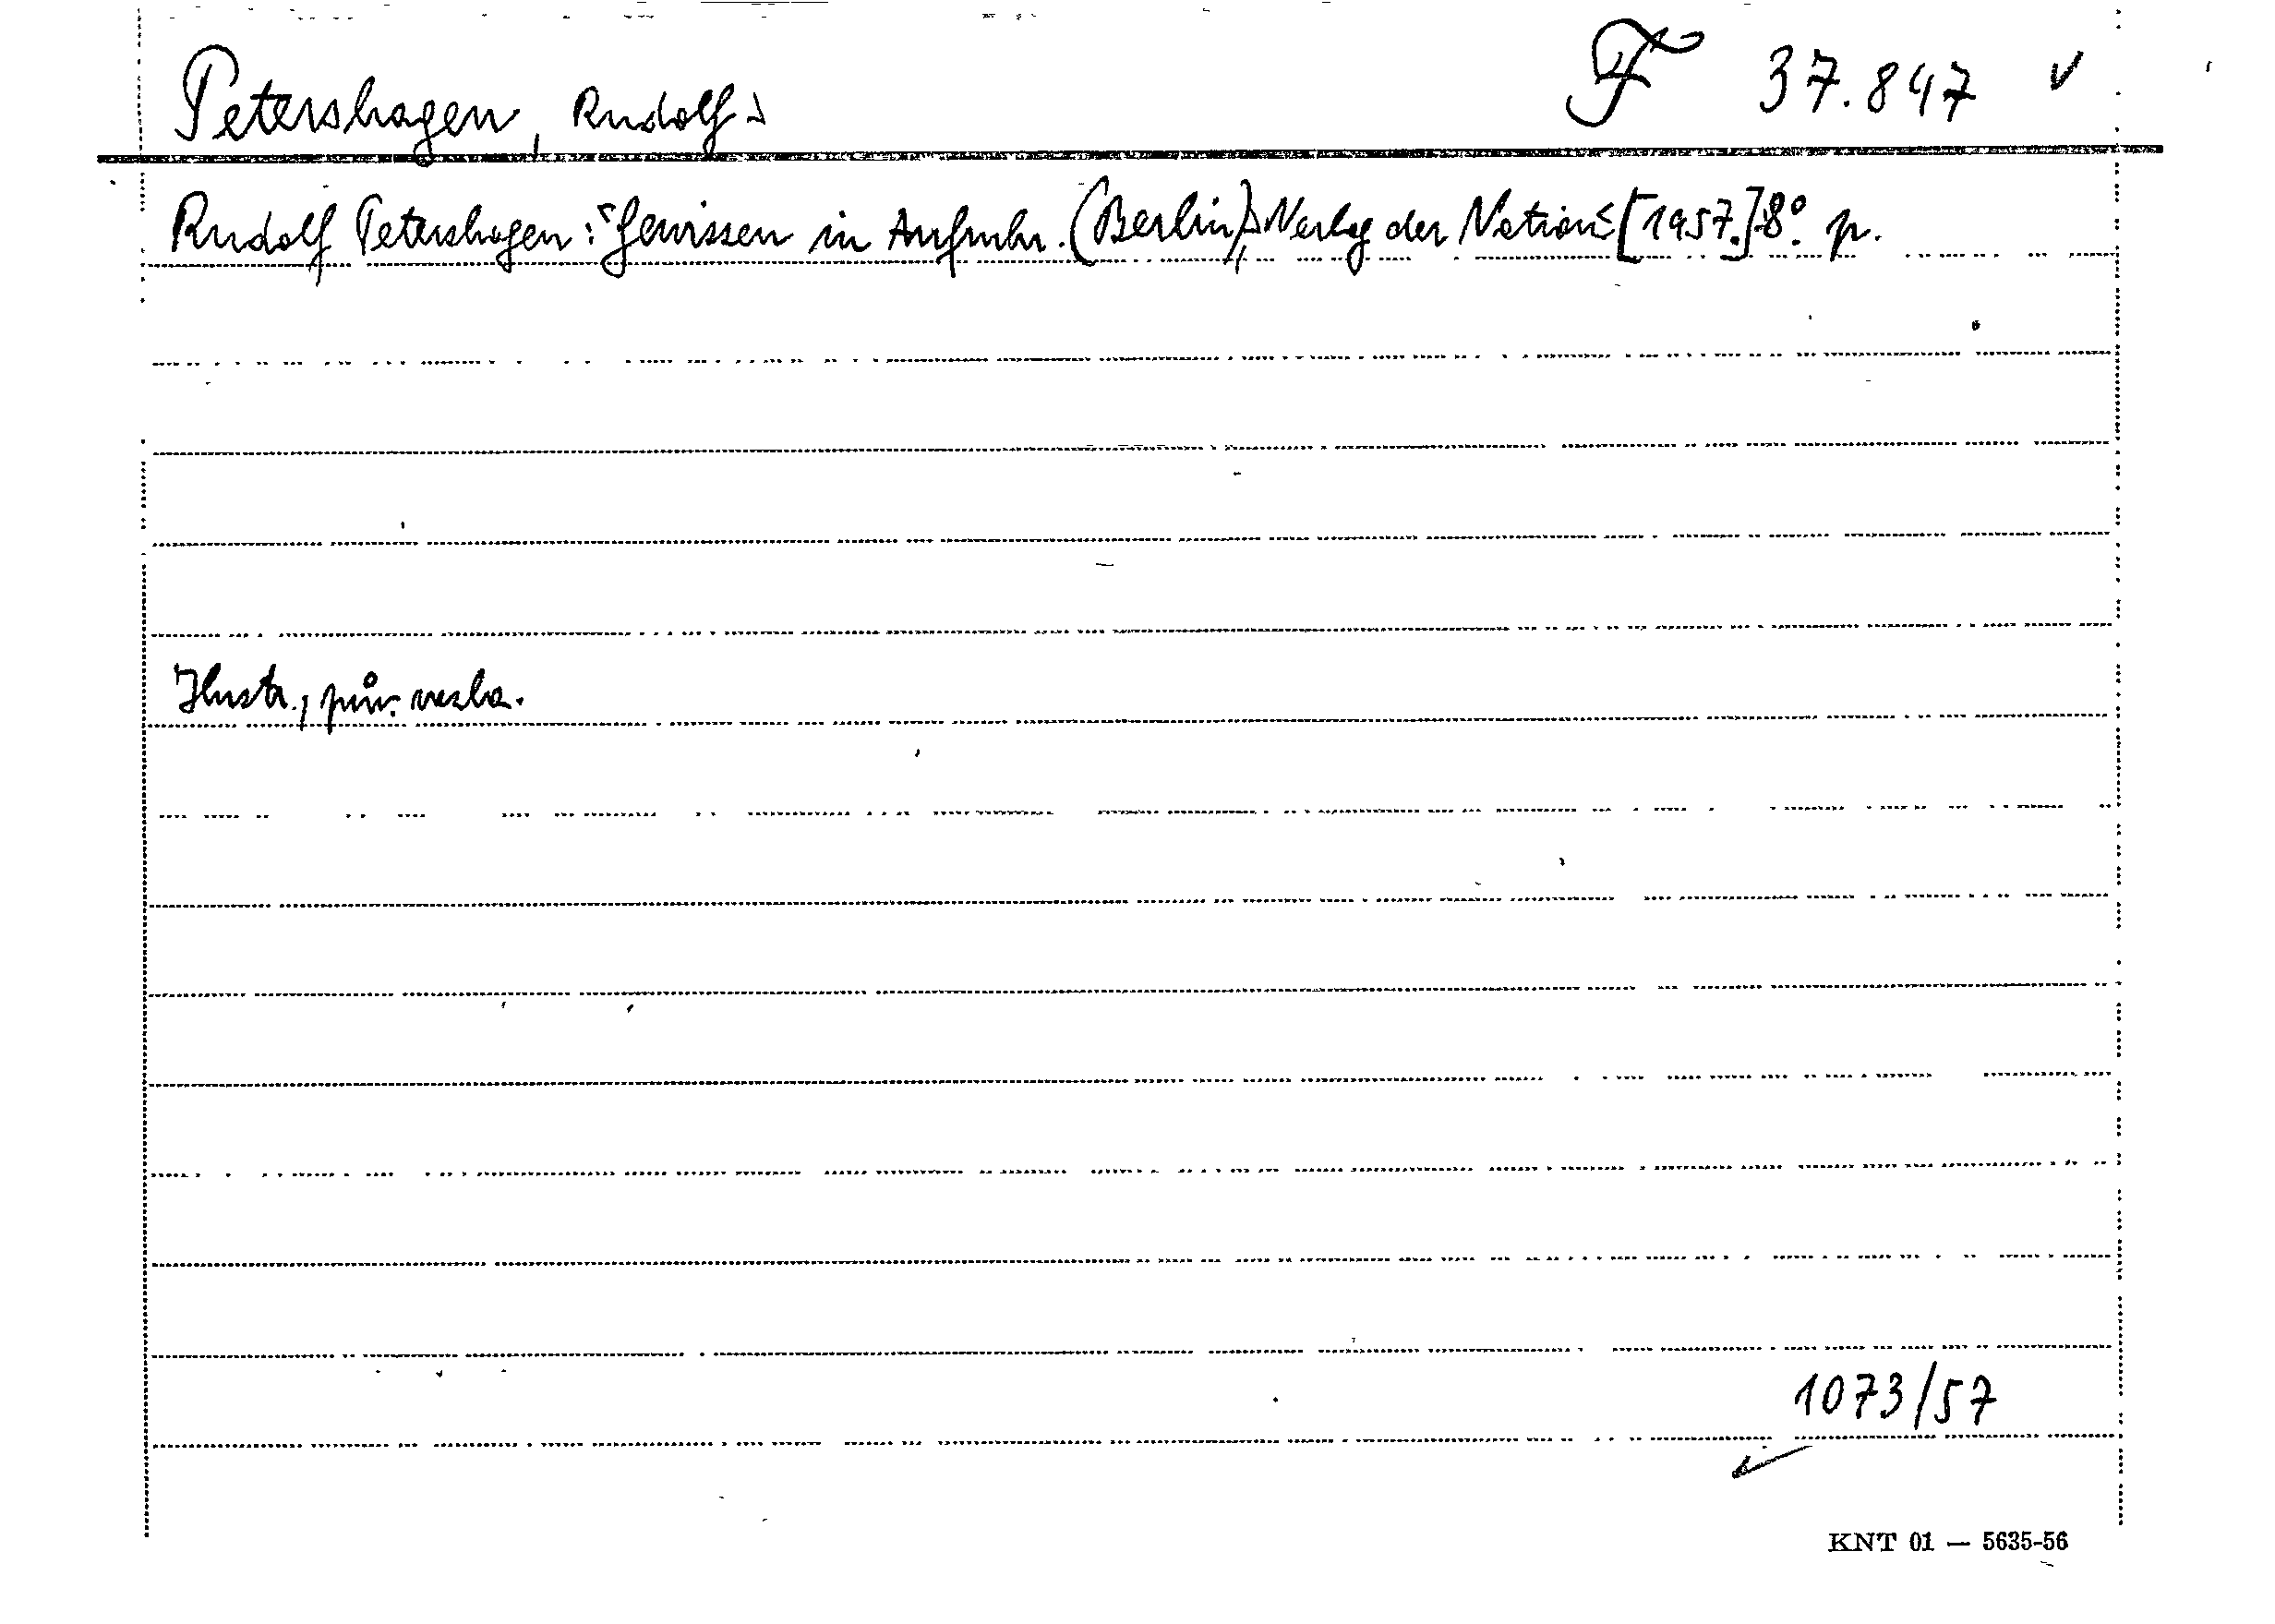 Petershagen, Rudolf F 37.847 v
Rudolf Petershagen: Gewissen in Aufruhr. (Berlin,) Verlag der Nation [1957.] 8° p.
Ilustr., pův. vazba.
1073/57
KNT 01 — 5635-56